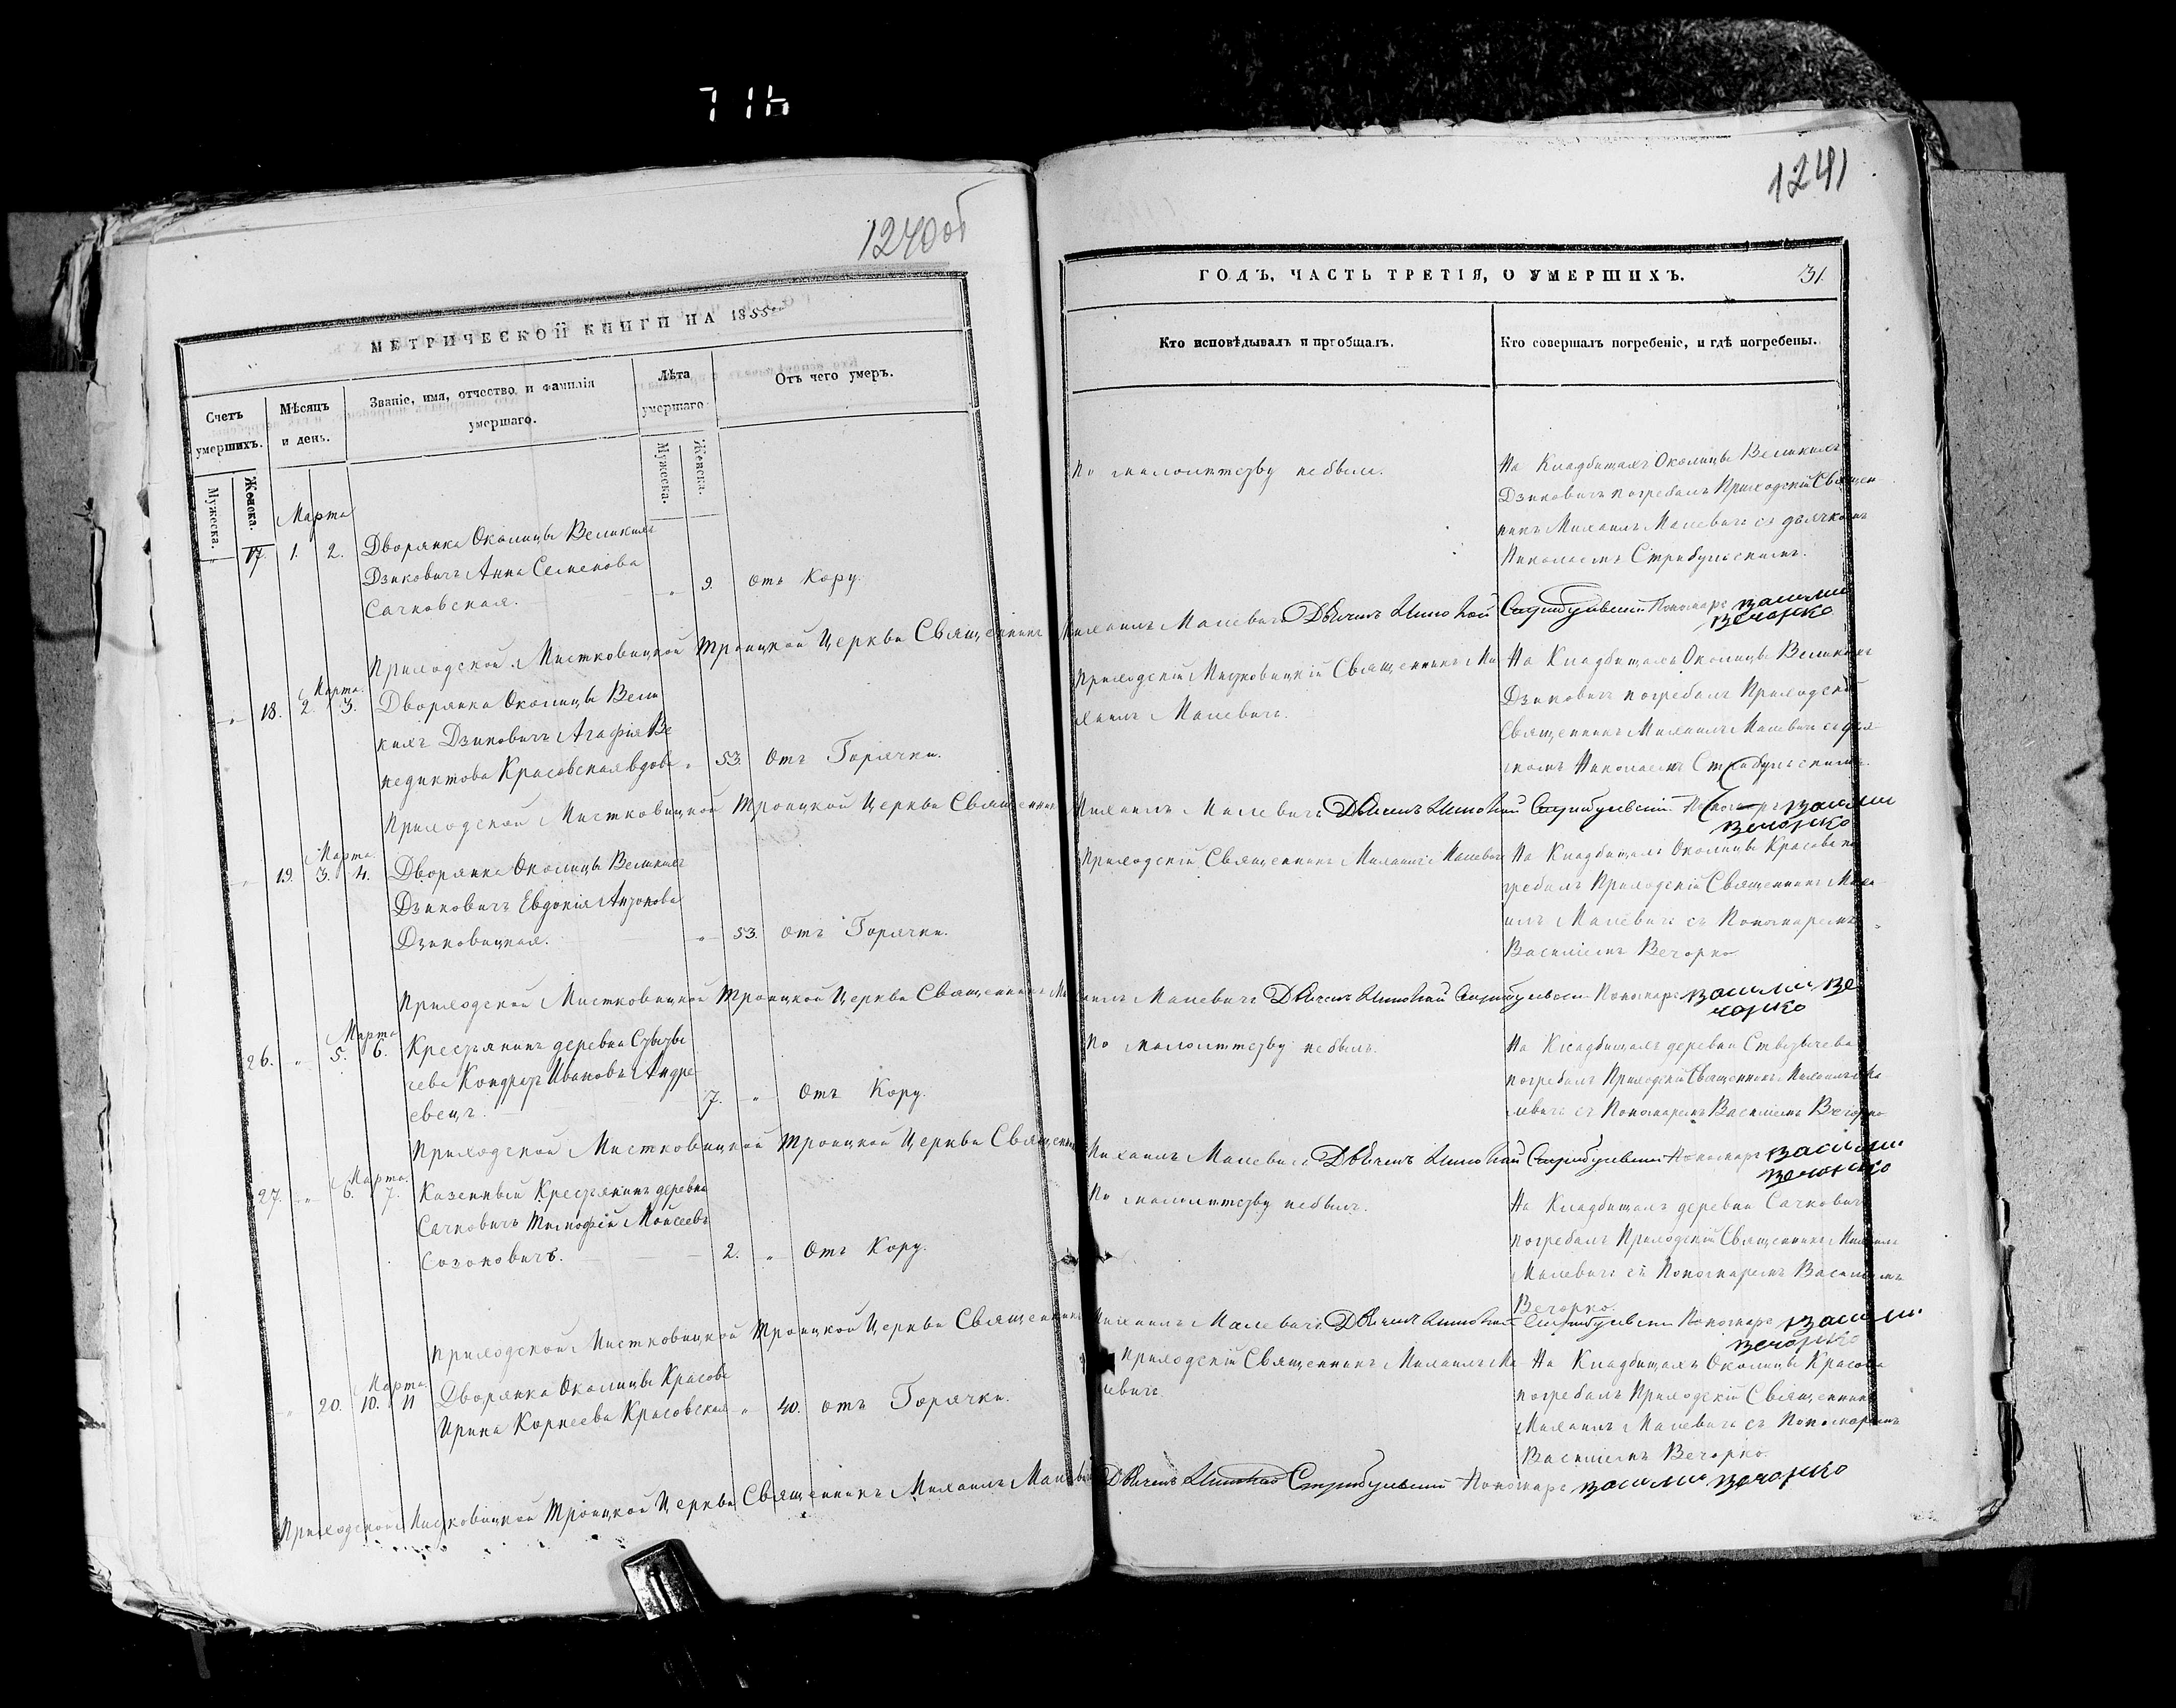 716
1240об
МЕТРИЧЕСКОЙ КНИГИ НА 1855
Счетъ умершихъ.
Мѣсяцъ и день.
Званіе, имя, отчество и фамилія умершаго.
Лѣта умершаго
Отъ чего умеръ.
Мужеска.
Женска.
Мужеска.
Женска.
Марта
17. 1. 2. Дворянка Околицы Великихъ
Дзиковичъ Анна Семенова
Сачковская. " 9. отъ Кору.
Приходской Мистковицкой Троицкой Церкви Священникъ
Марта
" 18. 2. 3. Дворянка Околицы Вели
кихъ Дзиковичъ Агафія Ве
недиктова Красовская вдова " 53. Отъ Горячки.
Приходской Мистковицкой Троицкой Церкви Священникъ
Марта
" 19. 3. 4. Дворянка Околицы Великихъ
Дзиковичъ Евдокія Антонова
Дзиковицкая. " 53. отъ Горячки.
Приходской Мистковицкой Троицкой Церкви Священникъ Ми
Марта
26. " 5. 6. Крестьянинъ деревни Стытычева Кондратъ Ивановъ Андре
евецъ. 7. " Отъ Кору.
Приходской Мистковицкой Троицкой Церкви Священникъ
Марта
27. " 6. 7. Казенный Крестьянинъ деревни
Сачковичъ Тимофій Моисеевъ
Созоновичъ. 2. " Отъ Кору.
Приходской Мистковицкой Троицкой Церкви Священникъ
Марта
" 20. 10. 11 Дворянка Околицы Красова
Ирина Корнеева Красовская " 40. отъ Горячки.
Приходской Мистковицкой Троицкой Церкви Священникъ Михаилъ Малевичъ
1241
ГОДЪ, ЧАСТЬ ТРЕТІЯ, О УМЕРШИХЪ. 31.
Кто исповѣдывалъ и пріобщалъ.
Кто совершалъ погребеніе, и гдѣ погребены.
По малолѣтству небыла.
На Кладбищахъ Околицы Великихъ
Дзиковичъ погребалъ Приходскій Священ
никъ Михаилъ Малевичъ съ дьячкомъ
Николаемъ Стрибульскимъ.
Михаилъ Малевичъ Дьячекъ Николай Стрибульскій Пономарь Василій
Вечорко
Приходскій Мистковицкій Священникъ Ми
хаилъ Малевичъ.
На Кладбищахъ Околицы Великихъ
Дзиковичъ погребалъ Приходскій
Священникъ Михаилъ Малевичъ съ дья
чкомъ Николаемъ Стрибульскимъ.
Михаилъ Малевичъ Дьячекъ Николай Стрибульскій Пономарь Василій
Вечорко
Приходскій Священникъ Михаилъ Малевичъ
На Кладбищахъ Околицы Красова по
гребалъ Приходскій Священникъ Миха
илъ Малевичъ съ Пономаремъ
Василіемъ Вечорко
хаилъ Малевичъ Дьячекъ Николай Стрибульскій Пономарь Василій Ве
чорко
По малолѣтству небылъ.
На Кладбищахъ деревни Стытычева
погребалъ Приходскій Священникъ Михаилъ Ма
левичъ съ Пономаремъ Василіемъ Вечорко
Михаилъ Малевичъ Дьячекъ Николай Стрибульскій Пономарь Василій
Вечорко
По малолѣтству небылъ.
На Кладбищахъ деревни Сачковичъ
погребалъ Приходскій Священникъ Михаилъ
Малевичъ съ Пономаремъ Василіемъ
Вечорко.
Михаилъ Малевичъ Дьячекъ Николай Стрибульскій Пономарь Василій
Вечорко
Приходскій Священникъ Михаилъ Ма
левичъ
На Кладбищахъ Околицы Красова
погребалъ Приходскій Священникъ
Михаилъ Малевичъ съ Пономаремъ
Василіемъ Вечорко.
Дьячекъ Николай Стрибульскій Пономарь Василій Вечорко